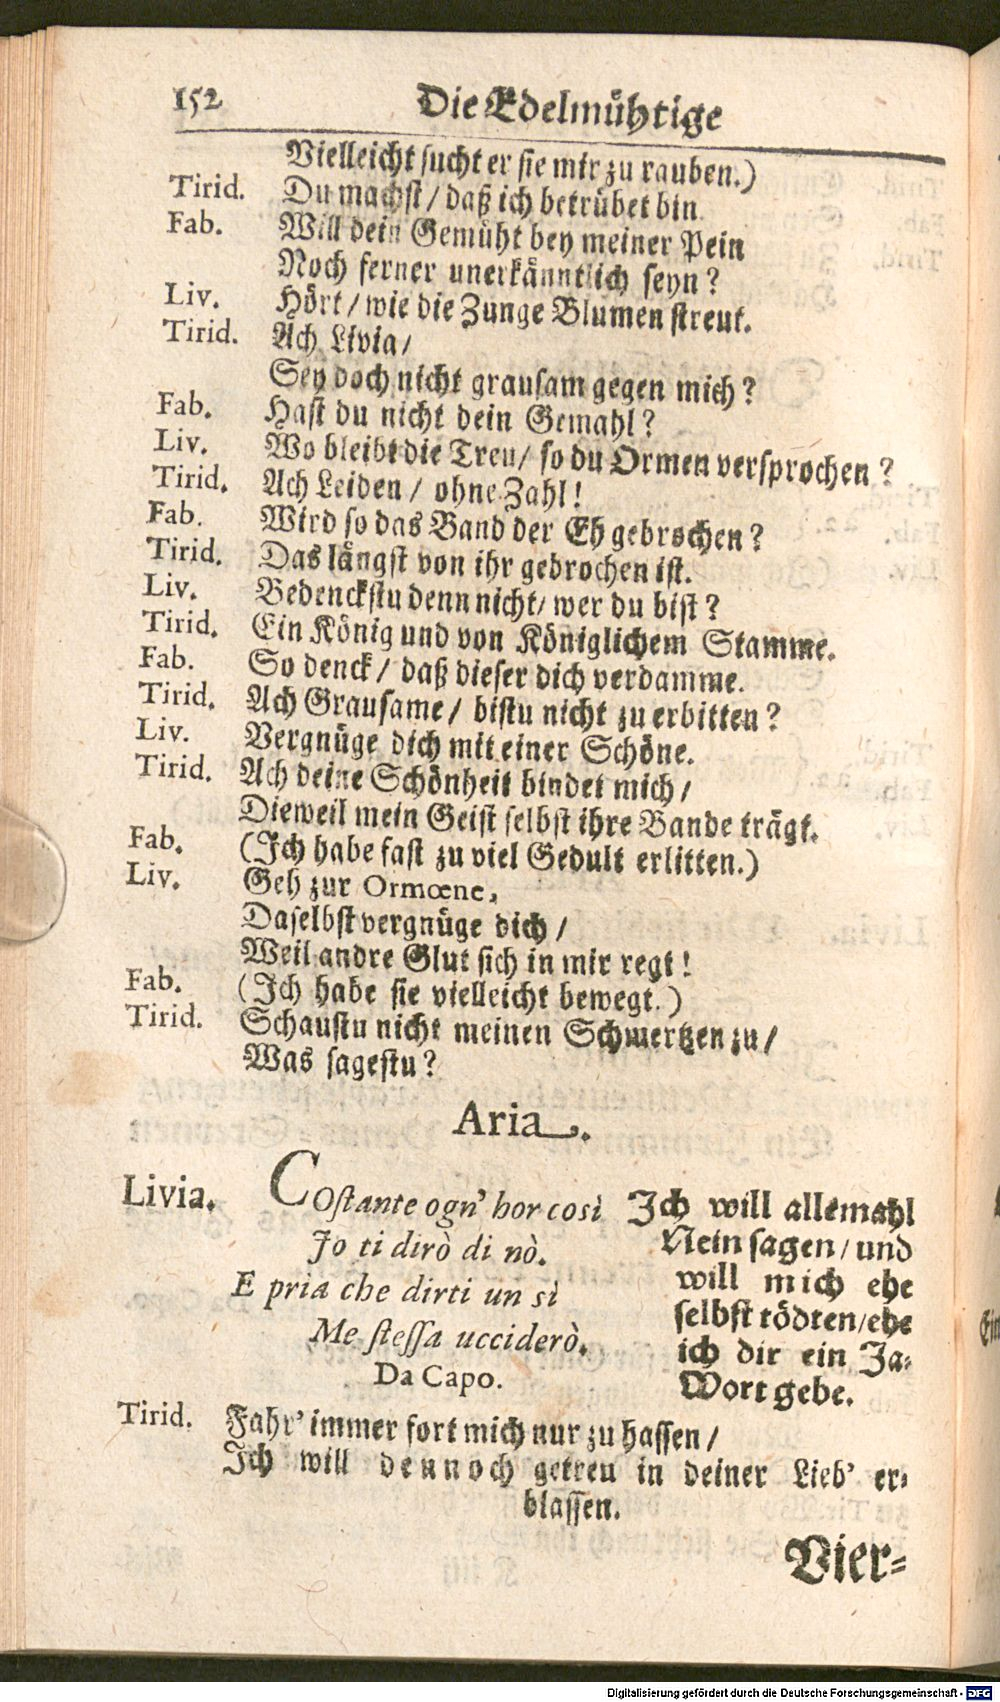 152 Die Edelmühtige
Vielleicht sucht er sie mir zu rauben.)
Tirid. Du machst / daß ich betrübet bin.
Fab. Will dein Gemüht bey meiner Pein
Noch ferner unerkänntlich seyn?
Liv. Hört / wie die Zunge Blumen streut.
Tirid. Ach Livia /
Sey doch nicht grausam gegen mich?
Fab. Hast du nicht dein Gemahl?
Liv. Wo bleibt die Treu / so du Ormen versprochen?
Tirid. Ach Leiden / ohne Zahl!
Fab. Wird so das Band der Eh gebrochen?
Tirid. Das längst von ihr gebrochen ist.
Liv. Bedenckstu denn nicht / wer du bist?
Tirid. Ein König und von Königlichem Stamme.
Fab. So denck / daß dieser dich verdamme.
Tirid. Ach Grausame / bistu nicht zu erbitten?
Liv. Vergnüge dich mit einer Schöne.
Tirid. Ach deine Schönheit bindet mich /
Dieweil mein Geist selbst ihre Bande trägt.
Fab. (Ich habe fast zu viel Gedult erlitten.)
Liv. Geh zur Ormœne,
Daselbst vergnüge dich /
Weil andre Glut sich in mir regt!
Fab. (Ich habe sie vielleicht bewegt.)
Tirid. Schaustu nicht meinen Schmertzen zu /
Was sagestu?
Aria.
Livia. Costante ogn' hor così
Jo ti dirò di nò.
E pria che dirti un sì
Me stessaucciderò.
Da Capo.
Ich will allemahl
Nein sagen / und
will mich ehe
selbst tödten / ehe
ich dir ein Ja-
Wort gebe.
Tirid. Fahr' immer fort mich nur zu hassen /
Ich will dennoch getreu in deiner Lieb' er-
blassen.
Vier-
Digitalisierung gefördert durch die Deutsche Forschungsgemeinschaft - DFG